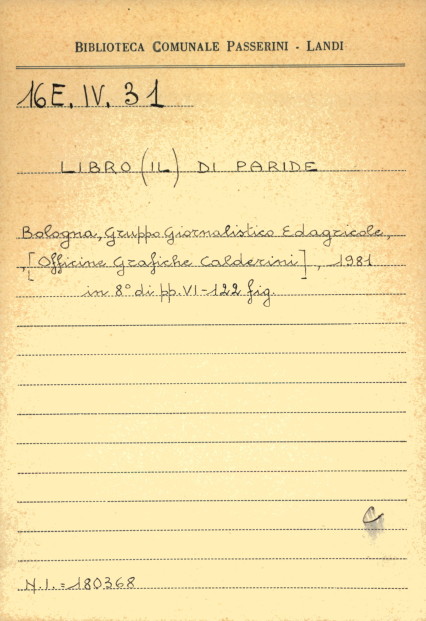 BIBLIOTECA COMUNALE PASSERINI - LANDI
16E. IV. 31
LIBRO (IL) DI PARIDE
Bologna, Gruppo Giornalistico Edagricole,
,[Officine Grafiche Calderini], 1981
in 8° di pp. VI-122 fig.
C
N.I. = 180368